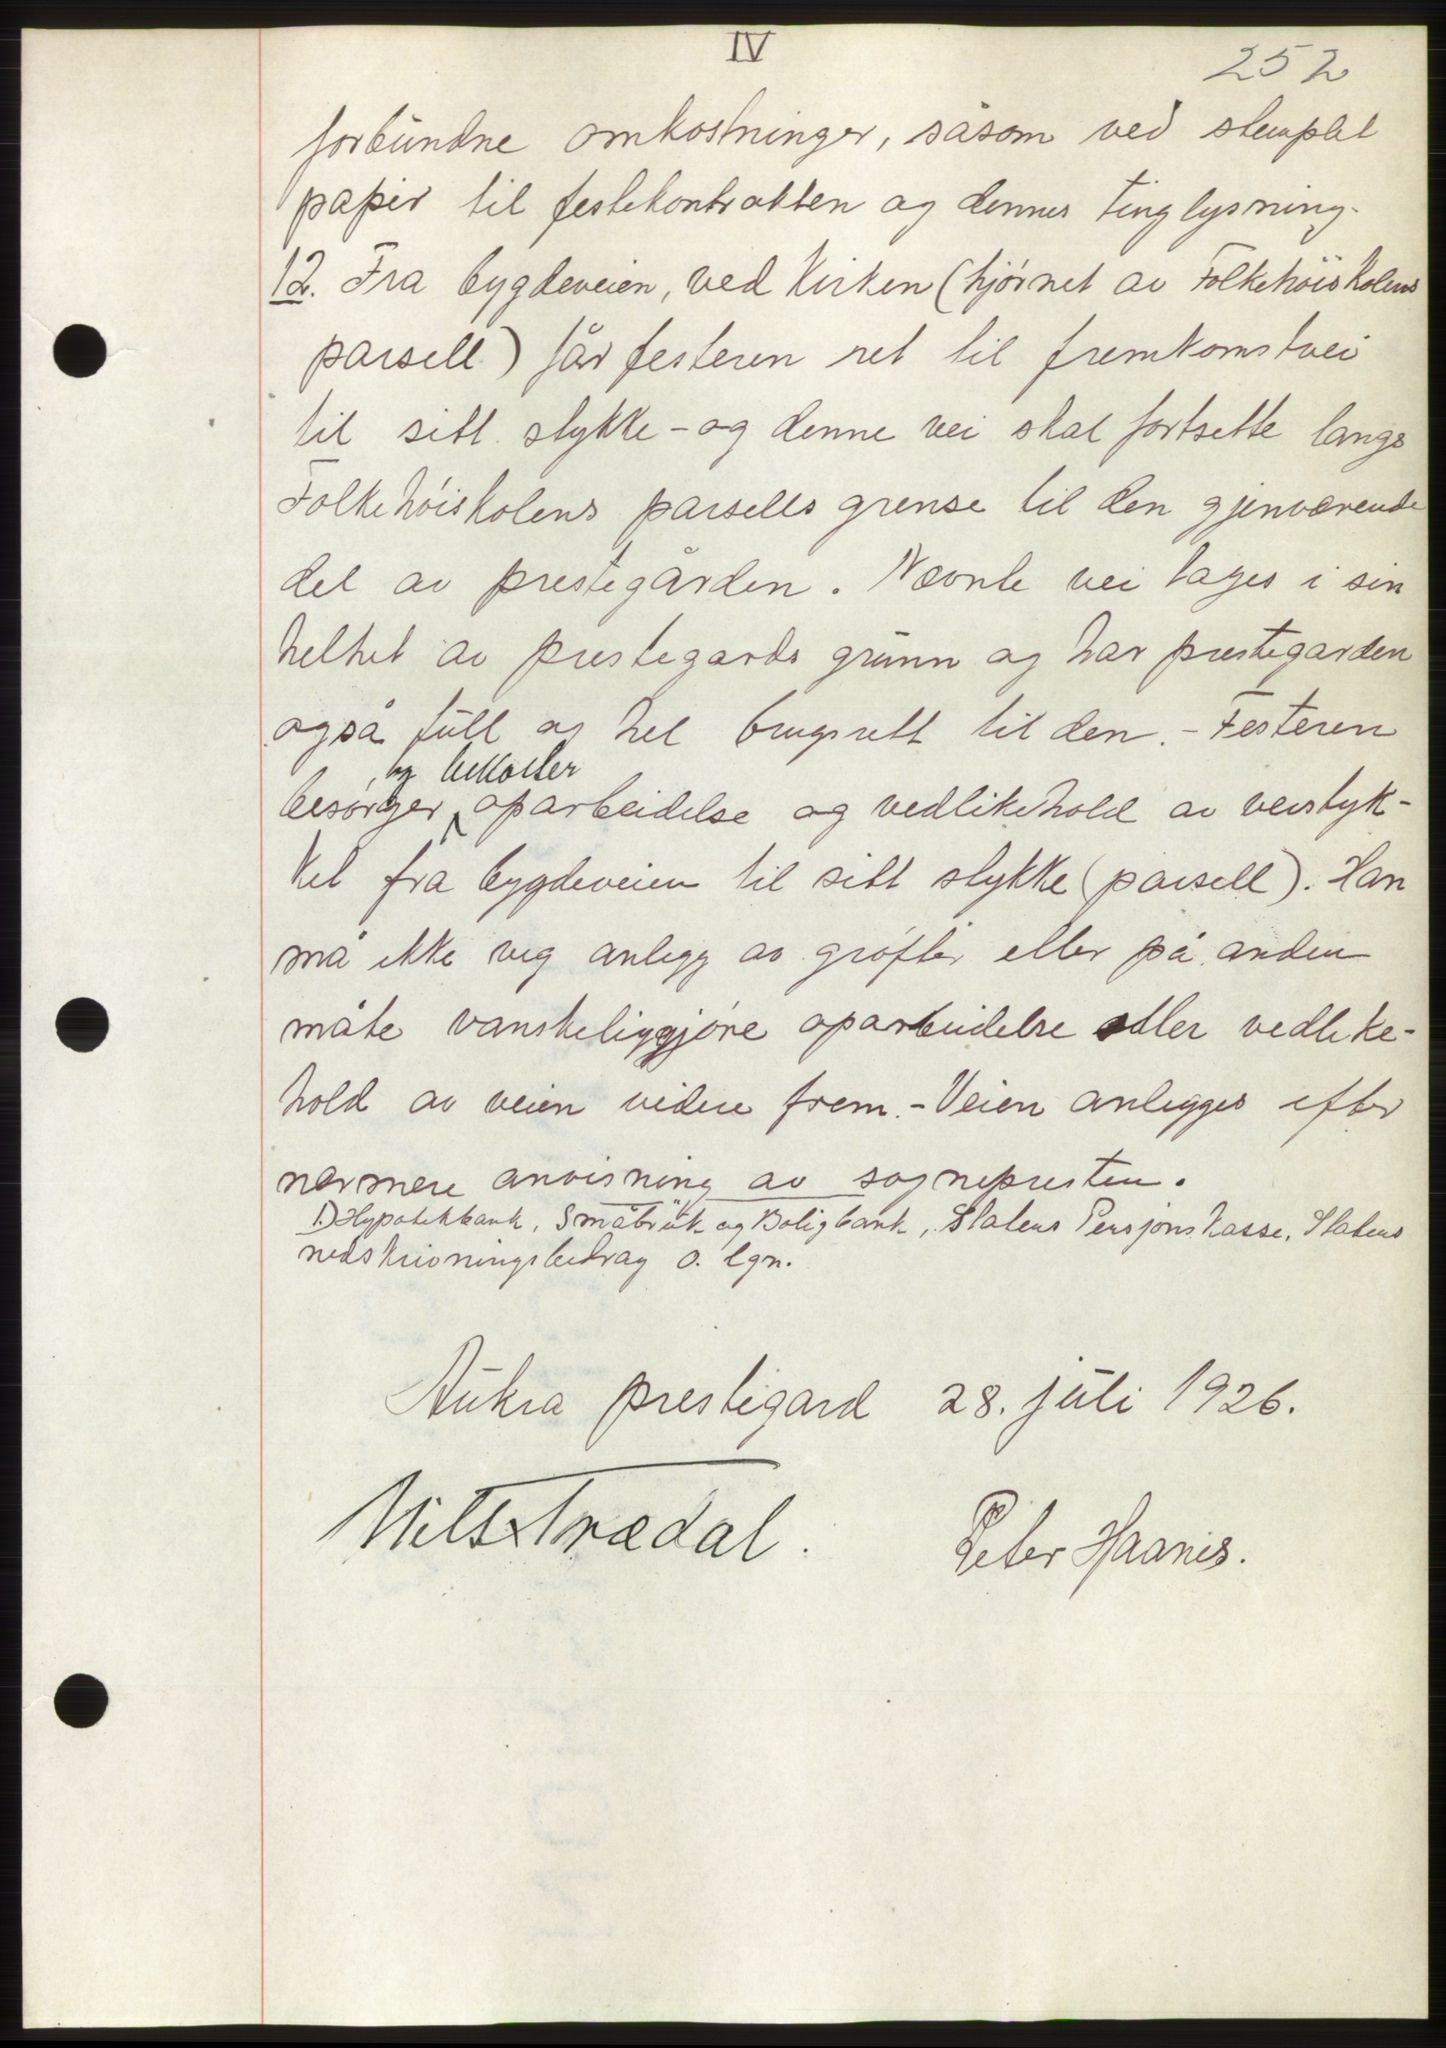 IV
252
forbundne omkostninger, såsom ved stemplet
papir til festekontrakten og dennes tinglysning.
12. Fra bygdeveien, ved Kirken (hjørnet av Folkehöiskolens
parsell) får festeren ret til fremkomstvei
til sitt stykke - og denne vei skal fortsette langs
Folkehöiskolens parsells grense til den gjenværende
del av prestegården. Nævnte vei tages i sin
helhet av prestegards grunn og har prestegarden
også full og hel brugsrett til den. - Festeren
og bekoster
besørger oparbeidelse og vedlikehold av veistyk-
ket fra bygdeveien til sitt stykke (parsell). Han
må ikke veg anlegg av grøfter eller på anden
måte vanskeliggjøre oparbeidelse eller vedlike-
hold av veien videre frem. - Veien anlegges efter
nærmere anvisning av sognepresten.
1.) Hypotekbank, Småbruk og Boligbank, Statens Pensjonskasse, Statens
nedskrivningsbidrag o. lgn.
Aukra prestegard 28. juli 1926.
Nils Trædal. Peter Haanes.